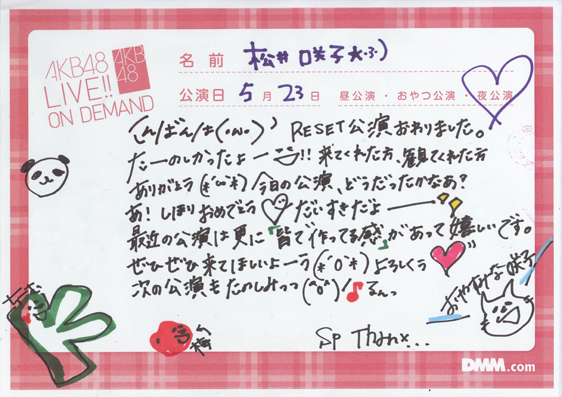 AKB48
LIVE!!
ON DEMAND
AKB
48
名前 松井咲子
公演日 5月23日 昼公演・おやつ公演・夜公演
こんばんは(・ω・)ノ RESET公演おわりました。
たーのしかったよー!! 来てくれた方、観てくれた方
ありがとう(*´ω`*)今日の公演、どうだったかなあ?
あ!しほりおめでとう だいすきだよー
最近の公演は更に『皆で作ってる感』があって嬉しいです。
ぜひぜひ来てほしいよーう(*´O`*)よろしくう
次の公演もたのしみっ(^o^)♪るんっ
おやすみな咲子
梅
Sp Thanx...
DMM.com